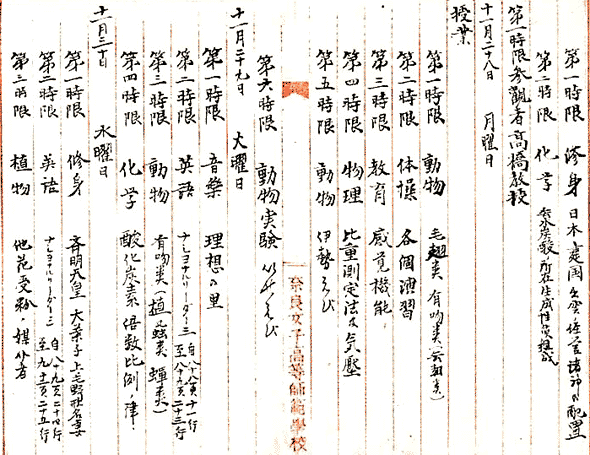 第一時限 修身 日本建国
第二時限 化学
第一時限参観者高橋教授
十一月二十八日 月曜日
授業
第一時限 動物 毛翅類 有吻類
第二時限 体操 各個演習
第三時限 教育 感覚機能
第四時限 物理 比重測定法及気圧
第五時限 動物 伊勢えび
奈良女子高等師範學校
第六時限 動物実験
十一月二十九日 火曜日
第一時限 音樂 理想の里
第二時限 英語 ナショナルリーダー三 自八十八頁十一行 至八十九頁二十三行
第三時限 動物 有吻類(椿蟲類 蟬類)
第四時限 化学 酸化炭素 倍数比例ノ律
十一月三十日 水曜日
第一時限 修身 斉明天皇 大葉子 上毛野形名妻
第二時限 英語 ナショナルリーダー三 自八十九頁二十四行 至九十頁二十五行
第三時限 植物 他花受粉 媒介者